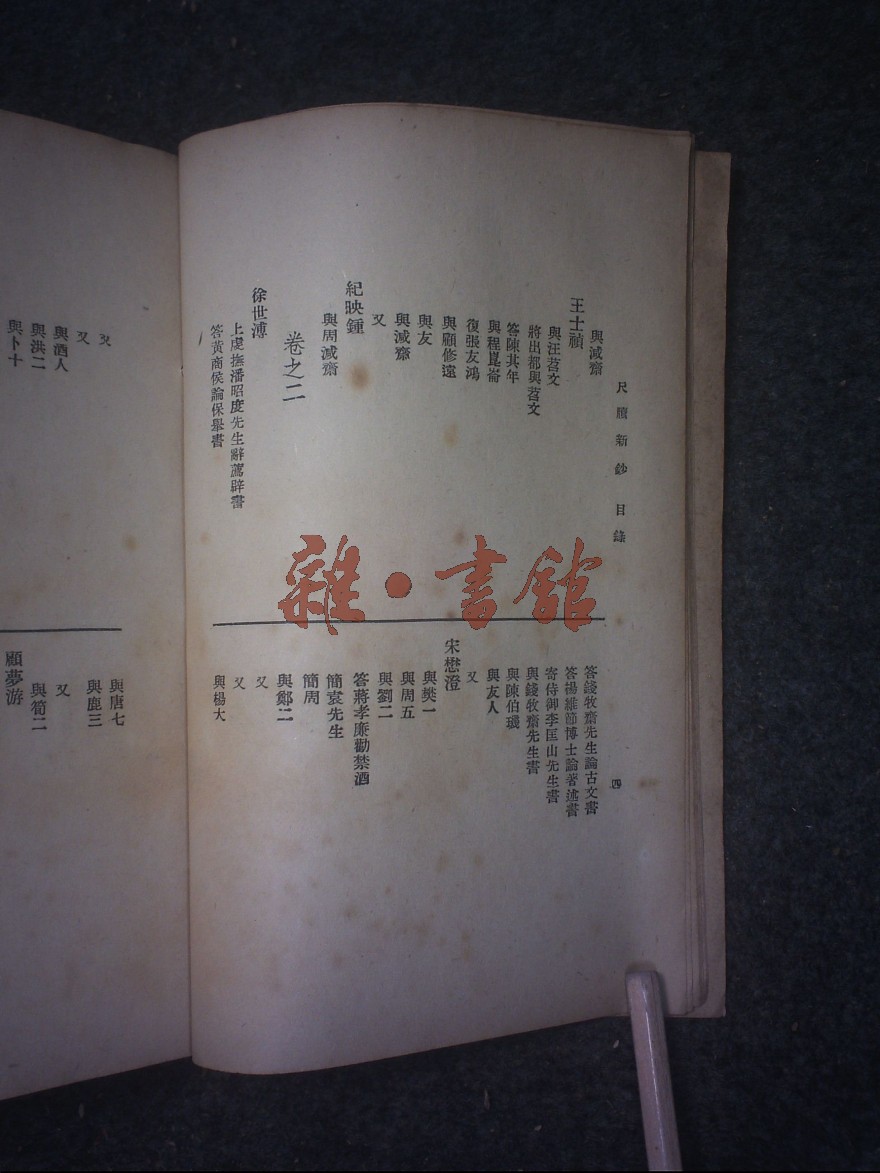 尺牘新鈔 目錄
四
與減齋
王士禎
與汪苕文
將出都與苕文
答陳其年
與程崑崙
復張友鴻
與顧修遠
與友
與減齋
又
紀映鍾
與周減齋
卷之二
徐世溥
上虔撫潘昭度先生辭薦辟書
答黃商侯論保舉書
答錢牧齋先生論古文書
答楊維節博士論著述書
寄侍御李匡山先生書
與錢牧齋先生書
與陳伯璣
與友人
又
宋懋澄
與樊一
與周五
與劉二
答蔣孝廉勸禁酒
簡袁先生
簡周
與鄭二
又
又
與楊大
又
又
與酒人
與洪二
與卜十
與唐七
與鹿三
又
與筍二
顧夢游
雜·書館